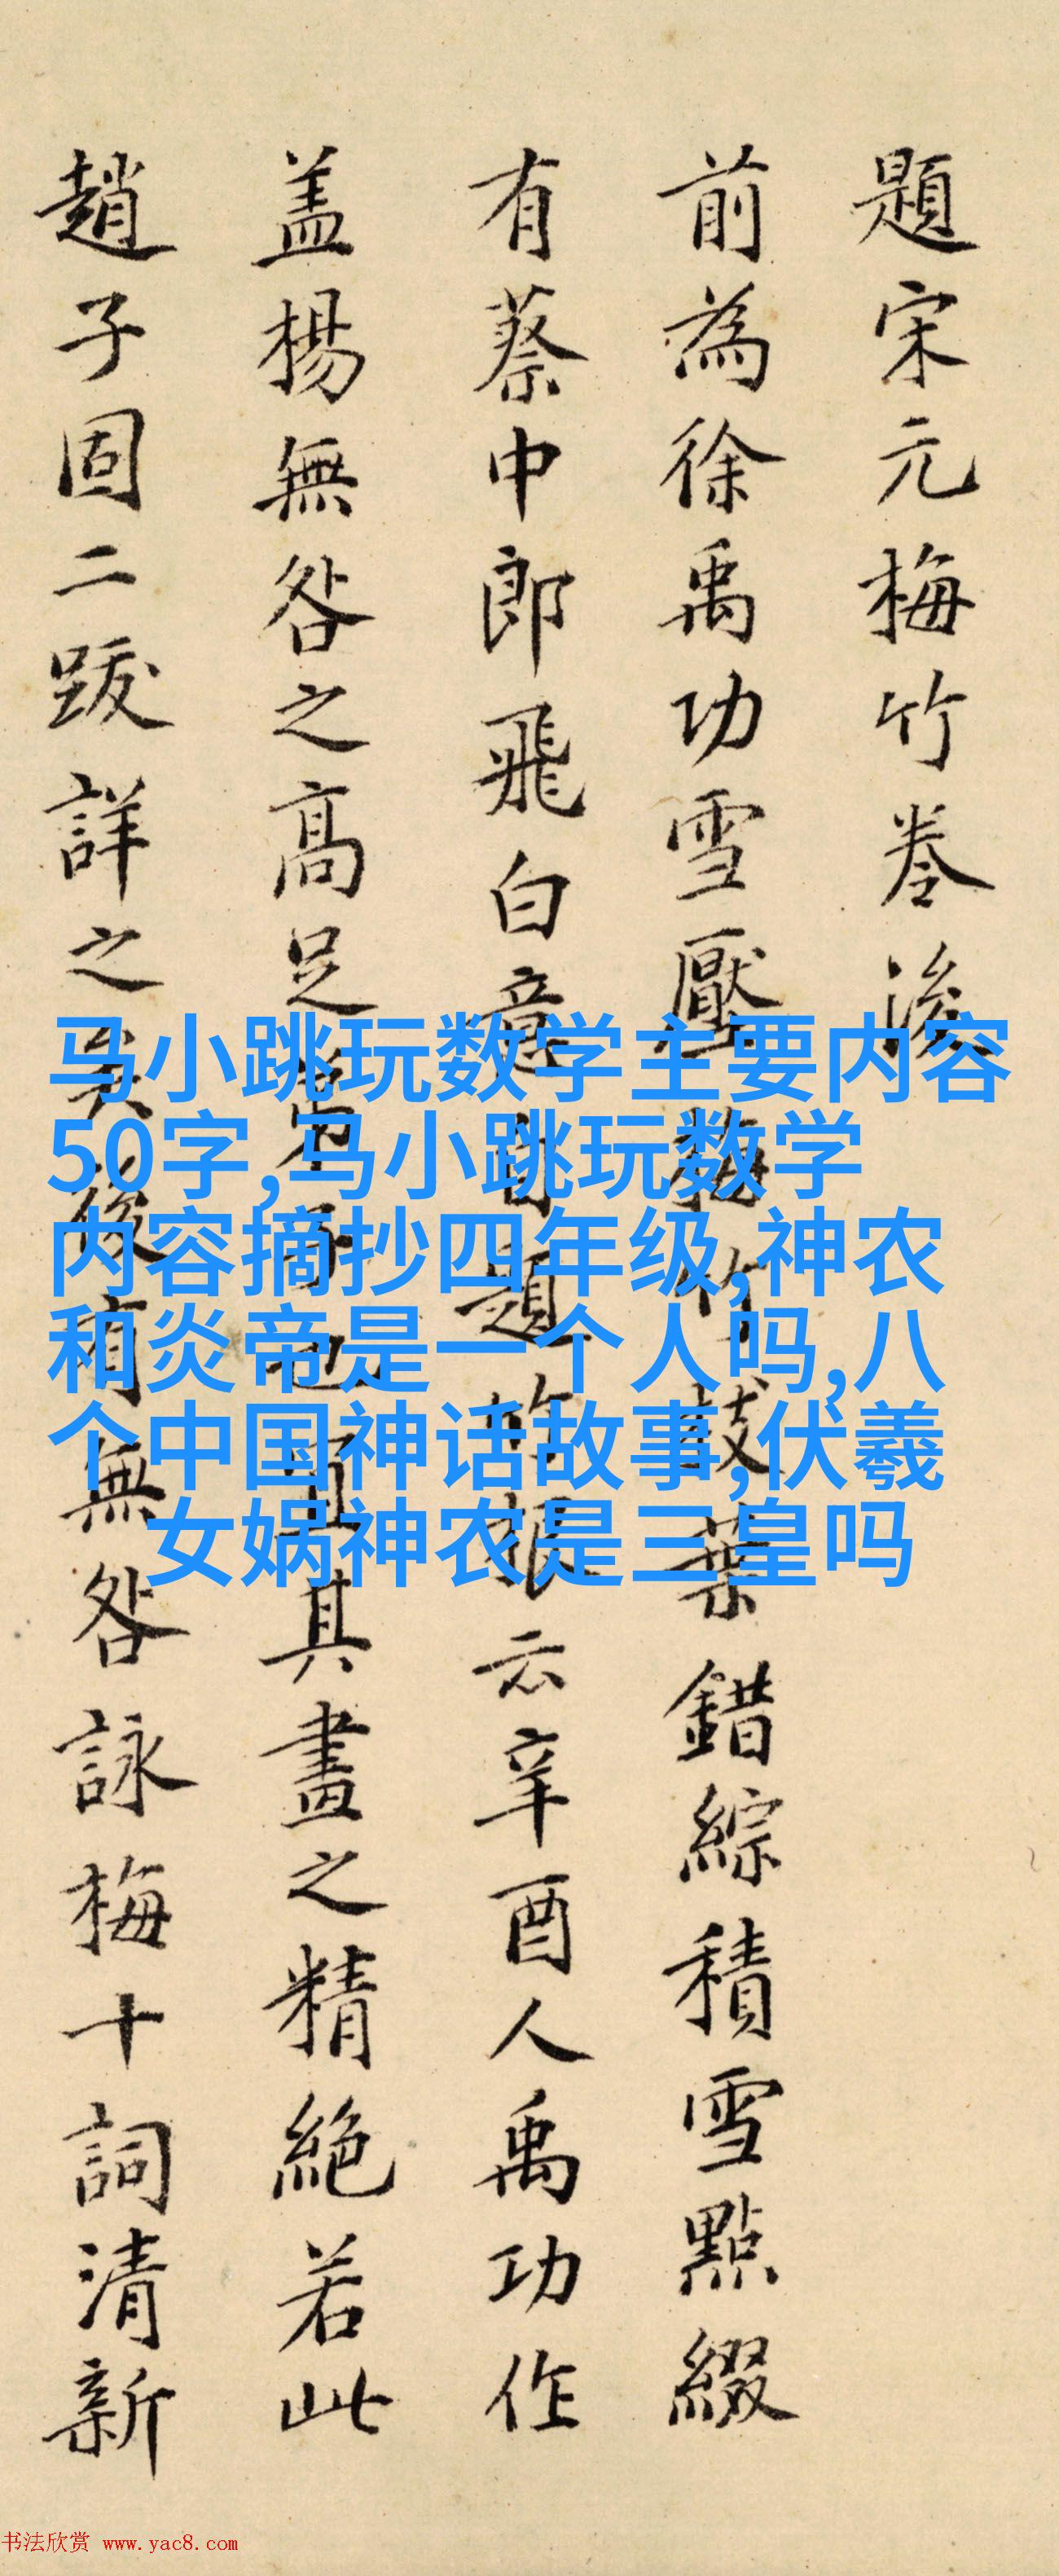 題宋元梅竹卷後
前為徐禹功雪壓梅竹枝葉錯綜積雪點綴
有蔡中郎飛白意自題於根云辛酉人禹功作
盖楊無咎之高足弟子也宜其畫之精絕若此
趙子固二跋詳之矣後有無咎詠梅十詞清新
马小跳玩数学主要内容
50字,马小跳玩数学
内容摘抄四年级,神农
和炎帝是一个人吗,八
个中国神话故事,伏羲
女娲神农是三皇吗
书法欣赏 www.yac8.com